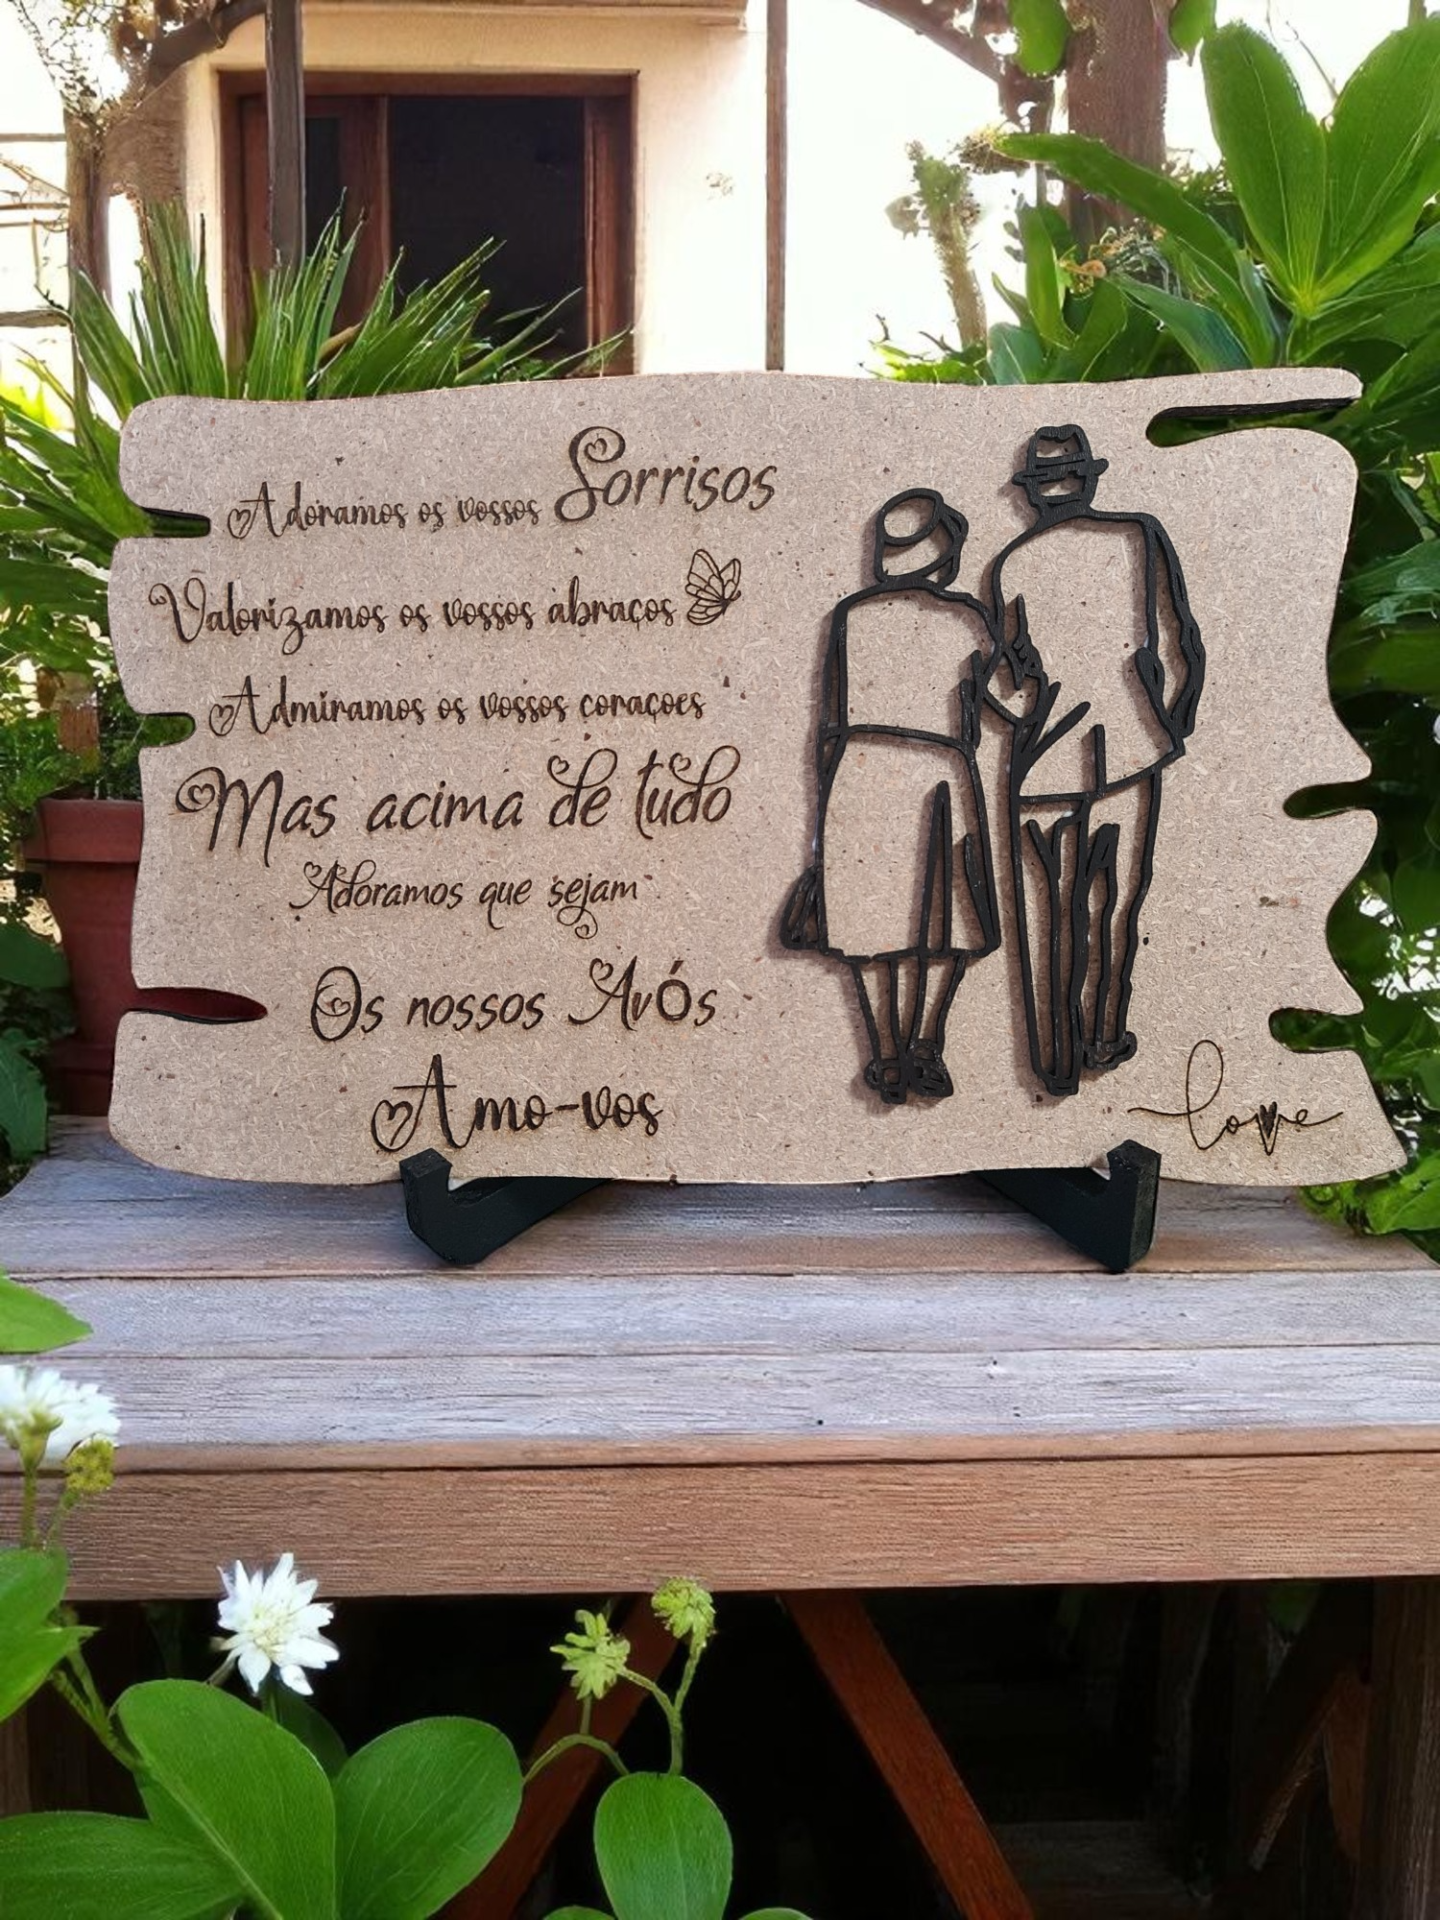 Adoramos os vossos Sorrisos
Valorizamos os vossos abraços
Admiramos os vossos corações
Mas acima de tudo
Adoramos que sejam
Os nossos Avós
Amo-vos
love